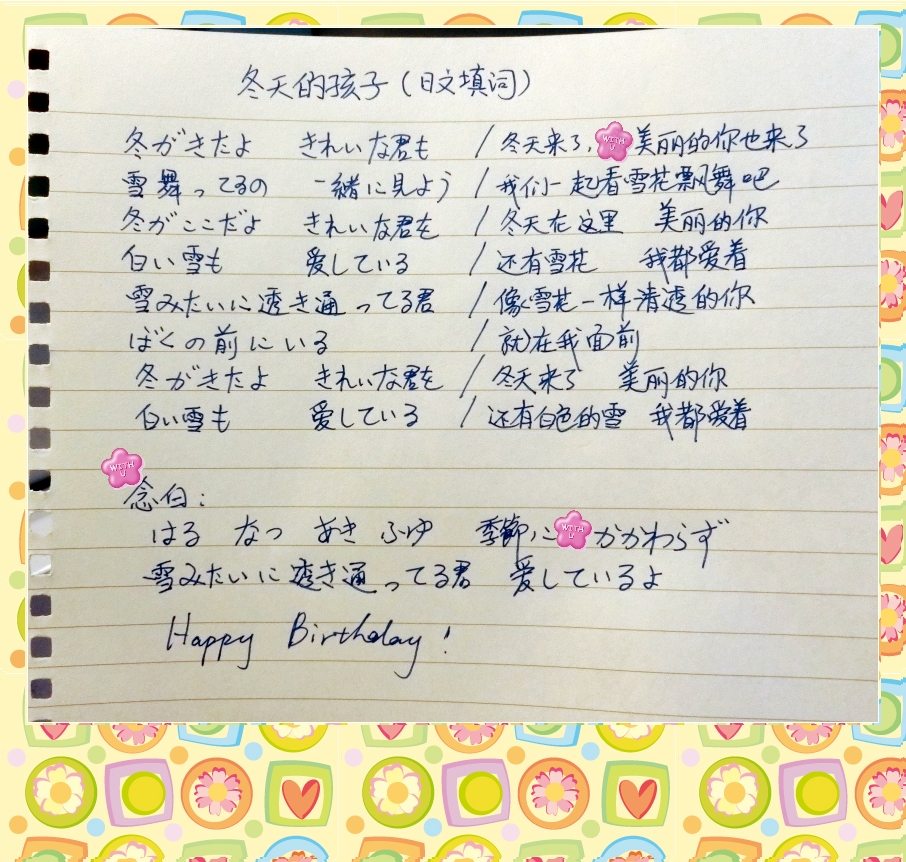 冬天的孩子(日文填词)
冬がきたよ きれいな君も / 冬天来了, WITH U 美丽的你也来了
雪舞ってるの 一緒に見よう / 我们一起看雪花飘舞吧
冬がここだよ きれいな君を / 冬天在这里 美丽的你
白い雪も 愛している / 还有雪花 我都爱着
雪みたいに透き通ってる君 / 像雪花一样清透的你
ぼくの前にいる / 就在我面前
冬がきたよ きれいな君を / 冬天来了 美丽的你
白い雪も 愛している / 还有白色的雪 我都爱着
WITH U
念白:
はる なつ あき ふゆ 季節に WITH U かかわらず
雪みたいに透き通ってる君 愛しているよ
Happy Birthday!